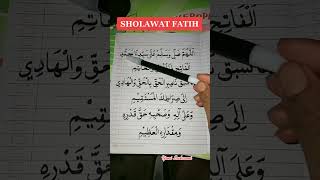 SHOLAWAT FATIH
اَللّٰهُمَّ صَلِّ وَسَلِّمْ عَلَى سَيِّدِنَا مُحَمَّدٍ
الْفَاتِحِ
نَاصِرِ الْحَقِّ بِالْحَقِّ وَالْهَادِي
إِلَى صِرَاطِكَ الْمُسْتَقِيْمِ
وَعَلَى آلِهِ وَصَحْبِهِ حَقَّ قَدْرِهِ
وَمِقْدَارِهِ الْعَظِيْمِ